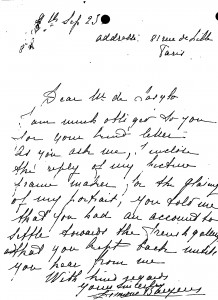 9th Sep 25
address: 81 rue de Lille
Paris
Dear Mr de
I am much obliged to you
for your kind letter
As you ask me, I inclose
the reply of my picture
frame maker, for the glazing
of my portrait, you told me
that you had an account to
settle towards the French gallery
that you kept back until
you hear from me
With kind regards
Yours sincerely
Simone